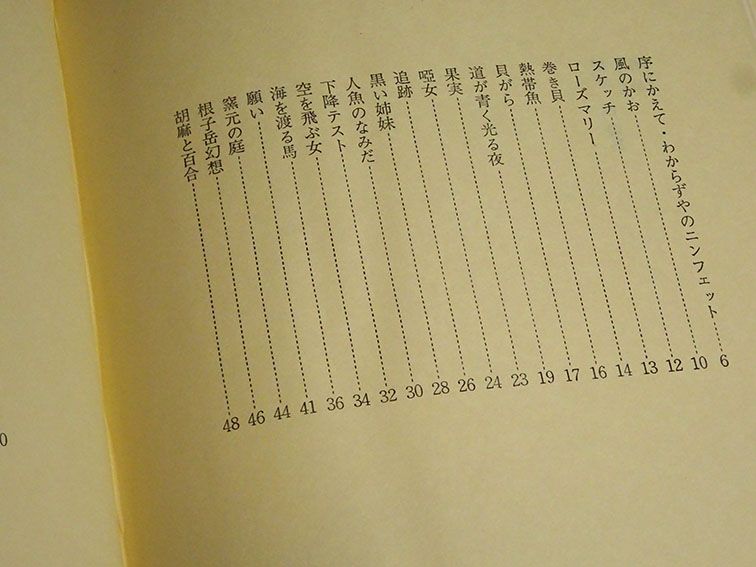 序にかえて・わからずやのニンフェット 6
風のかお 10
スケッチ 12
ローズマリー 13
巻き貝 14
熱帯魚 16
貝がら 17
道が青く光る夜 19
果実 23
啞女 24
追跡 26
黒い姉妹 28
人魚のなみだ 30
下降テスト 32
空を飛ぶ女 34
海を渡る馬 36
願い 41
窯元の庭 44
根子岳幻想 46
胡麻と百合 48